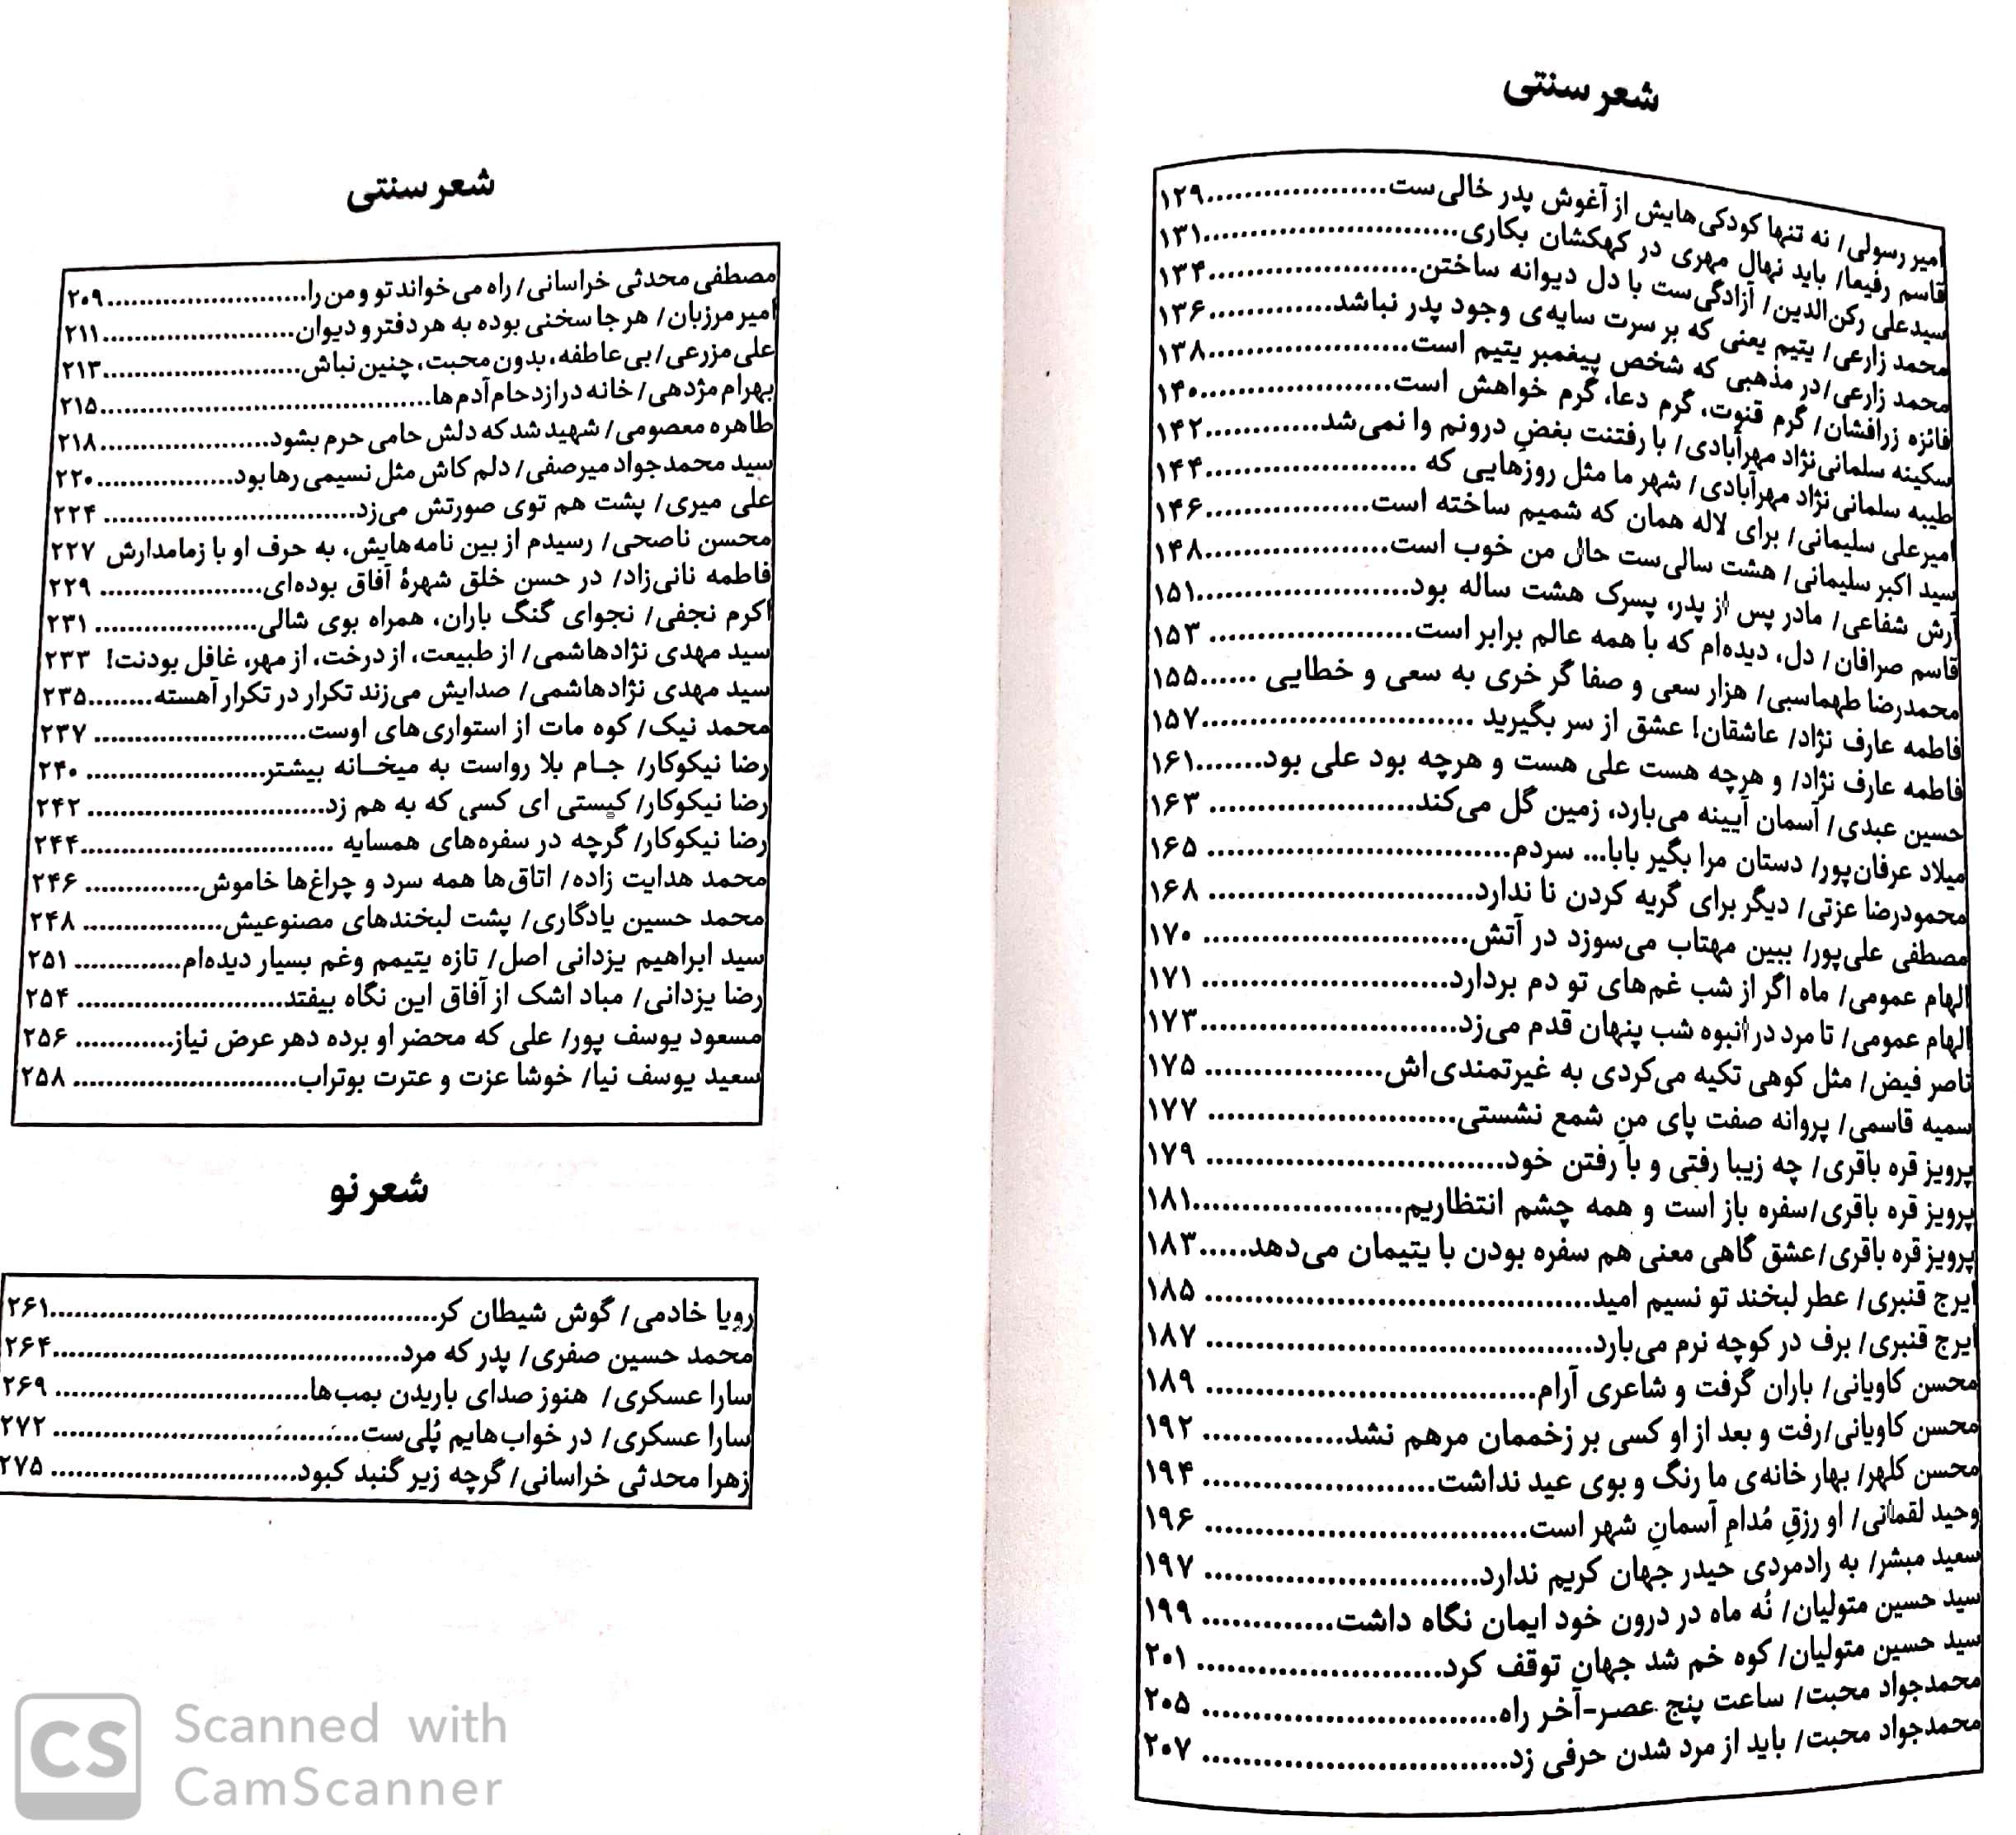 شعر سنتی
امیر رسولی/ نه تنها کودکی‌هایش از آغوش پدر خالی‌ست...................۱۲۹
قاسم رفیعا/ باید نهال مهری در کهکشان بکاری...........................۱۳۱
سیدعلی رکن‌الدین/ آزادگی‌ست با دل دیوانه ساختن......................۱۳۴
محمد زارعی/ یتیم یعنی که بر سرت سایه‌ی وجود پدر نباشد.............۱۳۶
محمد زارعی/ در مذهبی که شخص پیغمبر یتیم است.....................۱۳۸
فائزه زرافشان/ گرم قنوت، گرم دعا، گرم خواهش است....................۱۴۰
سکینه سلمانی‌نژاد مهرآبادی/ با رفتنت بغضِ درونم وا نمی‌شد............۱۴۲
طیبه سلمانی‌نژاد مهرآبادی/ شهر ما مثل روزهایی که .....................۱۴۴
امیرعلی سلیمانی/ برای لاله همان که شمیم ساخته است.................۱۴۶
سید اکبر سلیمانی/ هشت سالی‌ست حال من خوب است...................۱۴۸
آرش شفاعی/ مادر پس از پدر، پسرک هشت ساله بود.....................۱۵۱
قاسم صرافان/ دل، دیده‌ام که با همه عالم برابر است.................... ۱۵۳
محمدرضا طهماسبی/ هزار سعی و صفا گر خری به سعی و خطایی ......۱۵۵
فاطمه عارف نژاد/ عاشقان! عشق از سر بگیرید ...........................۱۵۷
فاطمه عارف نژاد/ و هرچه هست علی هست و هرچه بود علی بود.......۱۶۱
حسین عبدی/ آسمان آیینه می‌بارد، زمین گل می‌کند.................... ۱۶۳
میلاد عرفان‌پور/ دستان مرا بگیر بابا... سردم.............................. ۱۶۵
محمودرضا عزتی/ دیگر برای گریه کردن نا ندارد.......................... ۱۶۸
مصطفی علی‌پور/ ببین مهتاب می‌سوزد در آتش.......................... ۱۷۰
الهام عمومی/ ماه اگر از شب غم‌های تو دم بردارد........................ ۱۷۱
الهام عمومی/ تا مرد در انبوه شب پنهان قدم می‌زد.........................۱۷۳
ناصر فیض/ مثل کوهی تکیه می‌کردی به غیرتمندی‌اش.................. ۱۷۵
سمیه قاسمی/ پروانه صفت پای منِ شمع نشستی........................ ۱۷۷
پرویز قره باقری/ چه زیبا رفتی و با رفتن خود............................. ۱۷۹
پرویز قره باقری/سفره باز است و همه چشم انتظاریم.....................۱۸۱
پرویز قره باقری/عشق گاهی معنی هم سفره بودن با یتیمان می‌دهد.....۱۸۳
ایرج قنبری/ عطر لبخند تو نسیم امید...................................... ۱۸۵
ایرج قنبری/ برف در کوچه نرم می‌بارد...................................... ۱۸۷
محسن کاویانی/ باران گرفت و شاعری آرام................................ ۱۸۹
محسن کاویانی/رفت و بعد از او کسی بر زخممان مرهم نشد.............. ۱۹۲
محسن کلهر/ بهار خانه‌ی ما رنگ و بوی عید نداشت...................... ۱۹۴
وحید لقمانی/ او رزقِ مُدامِ آسمانِ شهر است................................ ۱۹۶
سعید مبشر/ به رادمردی حیدر جهان کریم ندارد........................... ۱۹۷
سید حسین متولیان/ نُه ماه در درون خود ایمان نگاه داشت............. ۱۹۹
سید حسین متولیان/ کوه خم شد جهان توقف کرد........................ ۲۰۱
محمدجواد محبت/ ساعت پنج عصر-آخر راه............................. ۲۰۵
محمدجواد محبت/ باید از مرد شدن حرفی زد.............................. ۲۰۷
شعر سنتی
مصطفی محدثی خراسانی/ راه می‌خواند تو و من را.........................۲۰۹
امیر مرزبان/ هر جا سخنی بوده به هر دفتر و دیوان........................۲۱۱
علی مزرعی/ بی‌عاطفه، بدون محبت، چنین نباش.........................۲۱۳
بهرام مژدهی/ خانه در ازدحام آدم‌ها..........................................۲۱۵
طاهره معصومی/ شهید شد که دلش حامی حرم بشود.....................۲۱۸
سید محمدجواد میرصفی/ دلم کاش مثل نسیمی رها بود.................۲۲۰
علی میری/ پشت هم توی صورتش می‌زد............................... ۲۲۴
محسن ناصحی/ رسیدم از بین نامه‌هایش، به حرف او با زمامدارش ۲۲۷
فاطمه نانی‌زاد/ در حسن خلق شهرهٔ آفاق بوده‌ای.................... ۲۲۹
اکرم نجفی/ نجوای گنگ باران، همراه بوی شالی.................... ۲۳۱
سید مهدی نژادهاشمی/ از طبیعت، از درخت، از مهر، غافل بودنت! ۲۳۳
سید مهدی نژادهاشمی/ صدایش می‌زند تکرار در تکرار آهسته........۲۳۵
محمد نیک/ کوه مات از استواری‌های اوست.......................... ۲۳۷
رضا نیکوکار/ جـام بلا رواست به میخـانه بیشتر...................... ۲۴۰
رضا نیکوکار/ کیستی ای کسی که به هم زد............................. ۲۴۲
رضا نیکوکار/ گرچه در سفره‌های همسایه ...............................۲۴۴
محمد هدایت زاده/ اتاق‌ها همه سرد و چراغ‌ها خاموش.............. ۲۴۶
محمد حسین یادگاری/ پشت لبخندهای مصنوعیش................. ۲۴۸
سید ابراهیم یزدانی اصل/ تازه یتیمم وغم بسیار دیده‌ام............. ۲۵۱
رضا یزدانی/ مباد اشک از آفاق این نگاه بیفتد......................... ۲۵۴
مسعود یوسف پور/ علی که محضر او برده دهر عرض نیاز............ ۲۵۶
سعید یوسف نیا/ خوشا عزت و عترت بوتراب........................... ۲۵۸
شعر نو
رویا خادمی/ گوش شیطان کر...............................................۲۶۱
محمد حسین صفری/ پدر که مرد..........................................۲۶۴
سارا عسکری/ هنوز صدای باریدن بمب‌ها............................... ۲۶۹
سارا عسکری/ در خواب‌هایم پُلی‌ست..................................... ۲۷۲
زهرا محدثی خراسانی/ گرچه زیر گنبد کبود............................. ۲۷۵
CS Scanned with
CamScanner